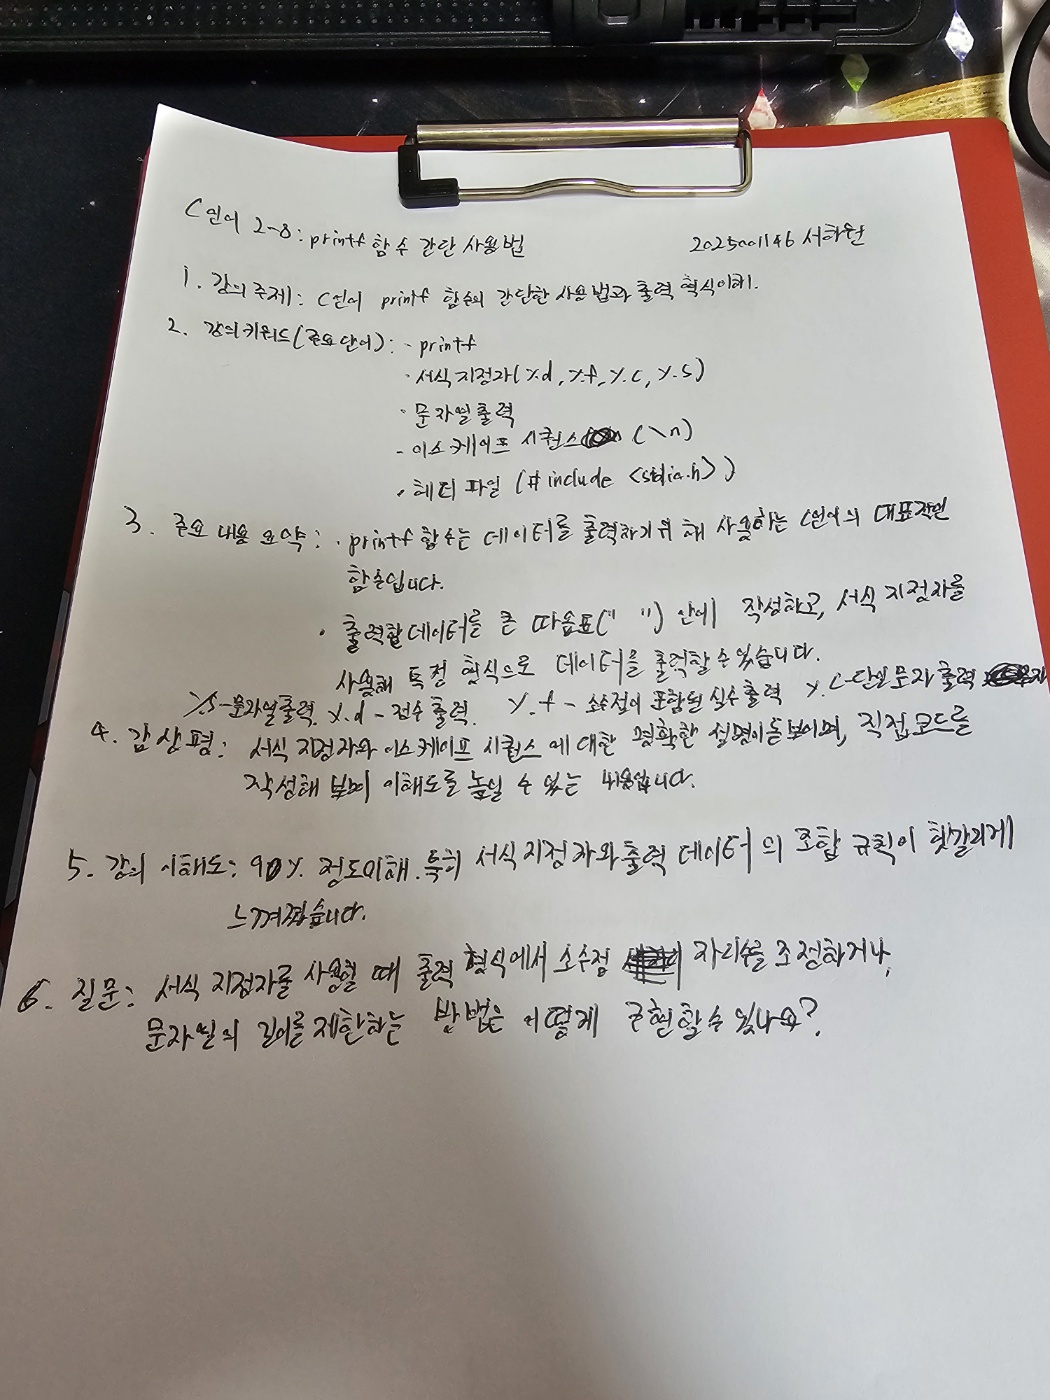 C언어 2-8: printf 함수 간단 사용법 2025001146 서하원
1. 강의 주제: C언어 printf 함수의 간단한 사용법과 출력 형식 이해.
2. 강의 키워드(주요 단어): · printf
· 서식 지정자(%d, %f, %c, %s)
· 문자열 출력
- 이스케이프 시퀀스 (\n)
· 헤더 파일 (#include <stdio.h>)
3. 주요 내용 요약: · printf 함수는 데이터를 출력하기 위해 사용하는 C언어의 대표적인
함수입니다.
· 출력할 데이터를 큰 따옴표(" ") 안에 작성하고, 서식 지정자를
사용해 특정 형식으로 데이터를 출력할 수 있습니다.
%s-문자열 출력. %d - 정수 출력. %f - 소수점이 포함된 실수 출력 %c-단일 문자 출력
4. 감상평: 서식 지정자와 이스케이프 시퀀스에 대한 명확한 설명이 돋보이며, 직접 코드를
작성해 보며 이해도를 높일 수 있는 내용입니다.
5. 강의 이해도: 90% 정도 이해. 특히 서식 지정자와 출력 데이터의 조합 규칙이 헷갈리게
느껴졌습니다.
6. 질문: 서식 지정자를 사용할 때 출력 형식에서 소수점 자리수를 조정하거나,
문자열의 길이를 제한하는 방법은 어떻게 구현할 수 있나요?